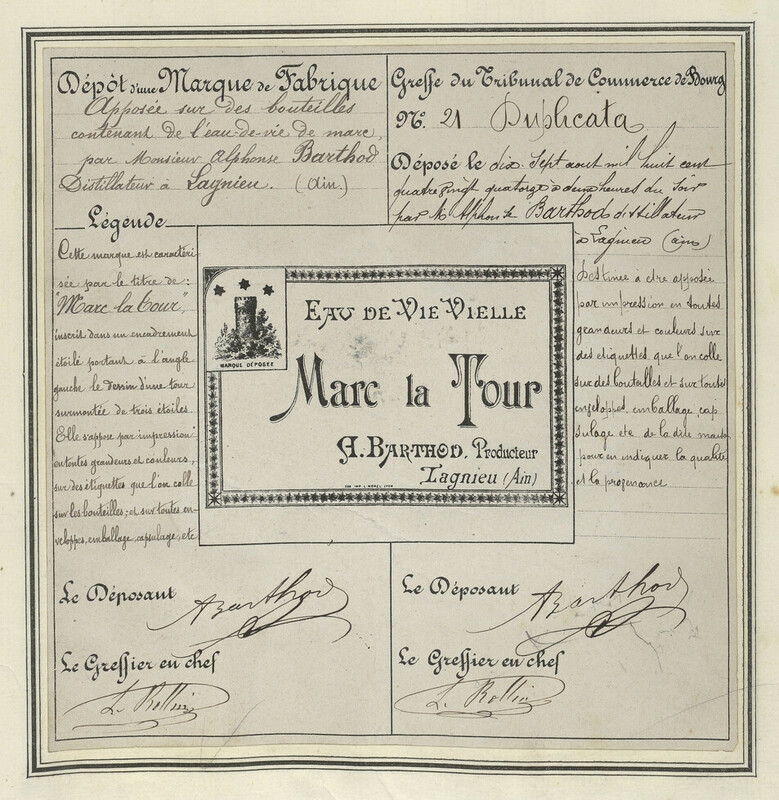 Dépôt d'une Marque de Fabrique
Apposée sur des bouteilles
contenant de l'eau-de-vie de marc,
par Monsieur Alphonse Barthod
Distillateur à Lagnieu. (Ain.)
Légende
Cette marque est caractéri
sée par le titre de:
"Marc la Tour",
inscrit dans un encadrement
étoilé portant à l'angle
gauche le dessin d'une tour
surmontée de trois étoiles.
Elle s'appose par impression
en toutes grandeurs et couleurs,
sur des étiquettes que l'on colle
sur les bouteilles; et sur toutes en-
veloppes, emballage, capsulage, etc
Greffe du Tribunal de Commerce de Bourg
No. 21 Duplicata
Déposé le dix Sept aout mil huit cent
quatre vingt quatorze à deux heures du soir
par M Alphonse Barthod distillateur
à Lagnieu (ain)
Destinée à être apposée
par impression en toutes
grandeurs et couleurs sur
des étiquettes que l'on colle
sur des bouteilles et sur toutes
enveloppes, emballage, cap
sulage etc de la dite marque
pour en indiquer la qualité
et la provenance
MARQUE DÉPOSÉE
EAU DE VIE VIELLE
Marc la Tour
A. BARTHOD, Producteur
Lagnieu (Ain)
Le Déposant
ABarthod
Le Greffier en chef
L. Rollin
Le Déposant
ABarthod
Le Greffier en chef
L. Rollin